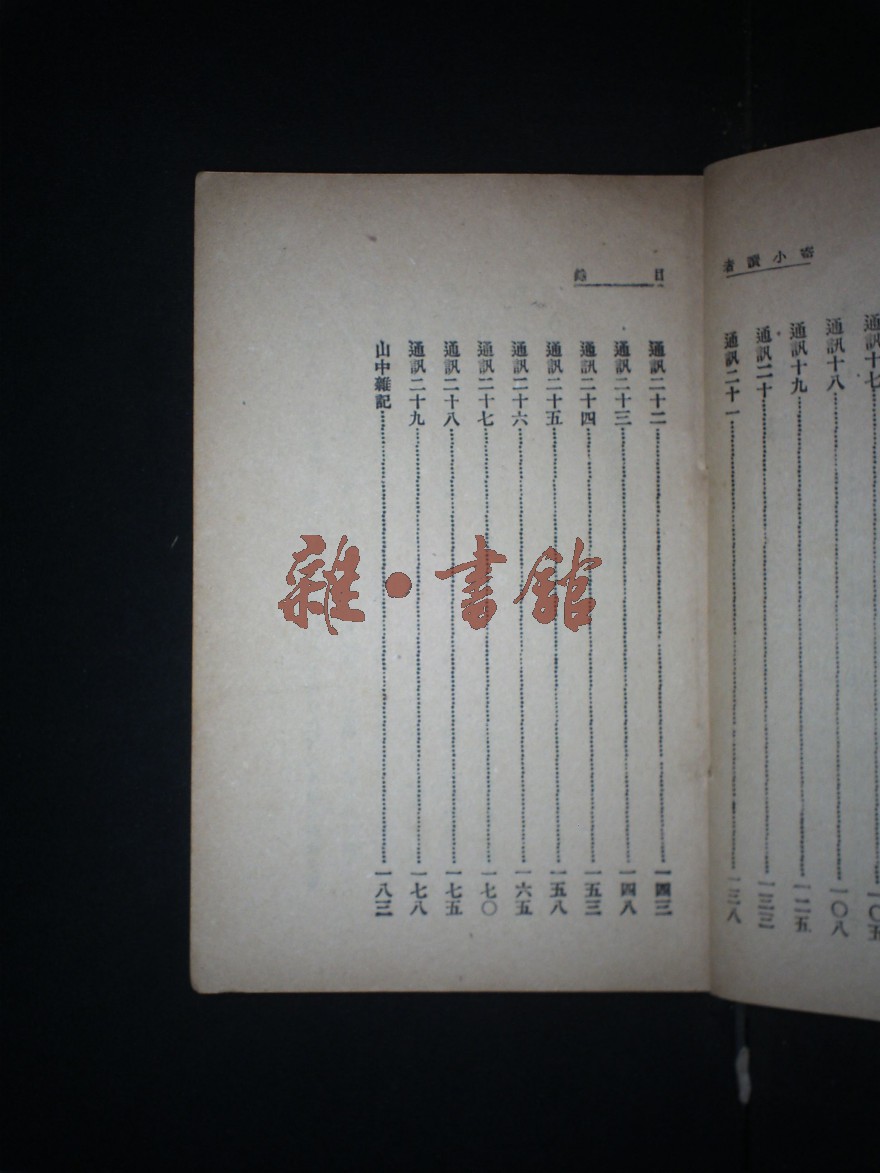 寄小讀者
通訊十七……一〇五
通訊十八……一〇八
通訊十九……一二五
通訊二十……一三三
通訊二十一……一三八
目錄
通訊二十二……一四三
通訊二十三……一四八
通訊二十四……一五三
通訊二十五……一五八
通訊二十六……一六五
通訊二十七……一七〇
通訊二十八……一七五
通訊二十九……一七八
山中雜記……一八三
雜·書館